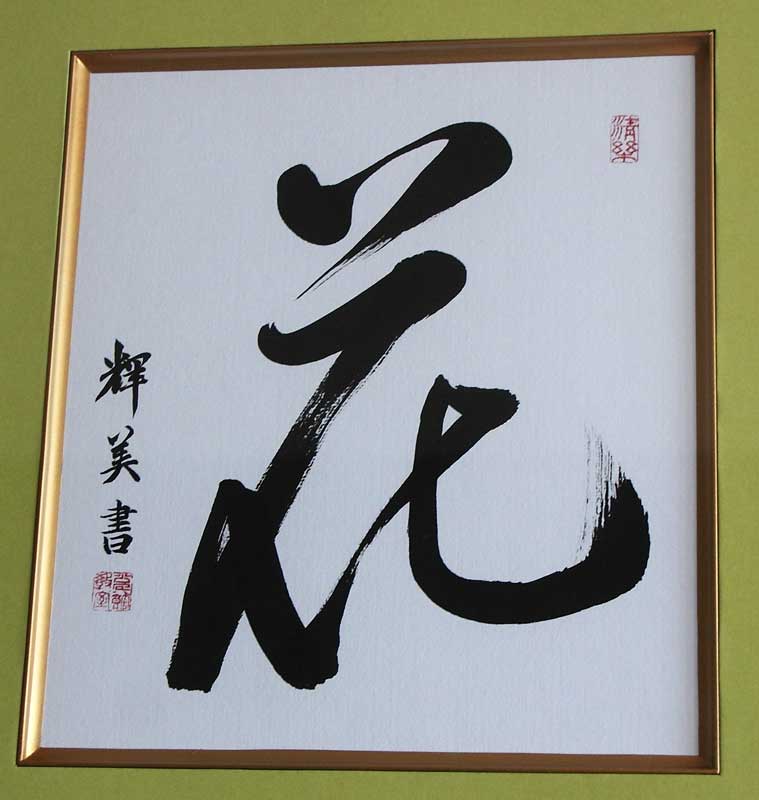 花
輝美書